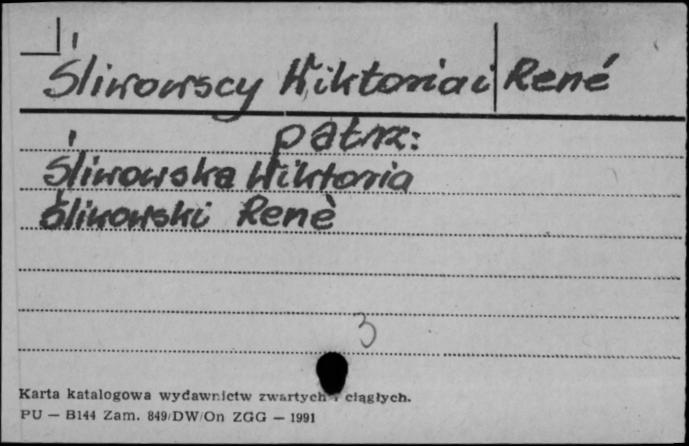 Śliwowscy Wiktoria i René
patrz:
Śliwowska Wiktoria
Śliwowski Renè
3
Karta katalogowa wydawnictw zwartych i ciągłych.
PU — B144 Zam. 849/DW/On ZGG — 1991